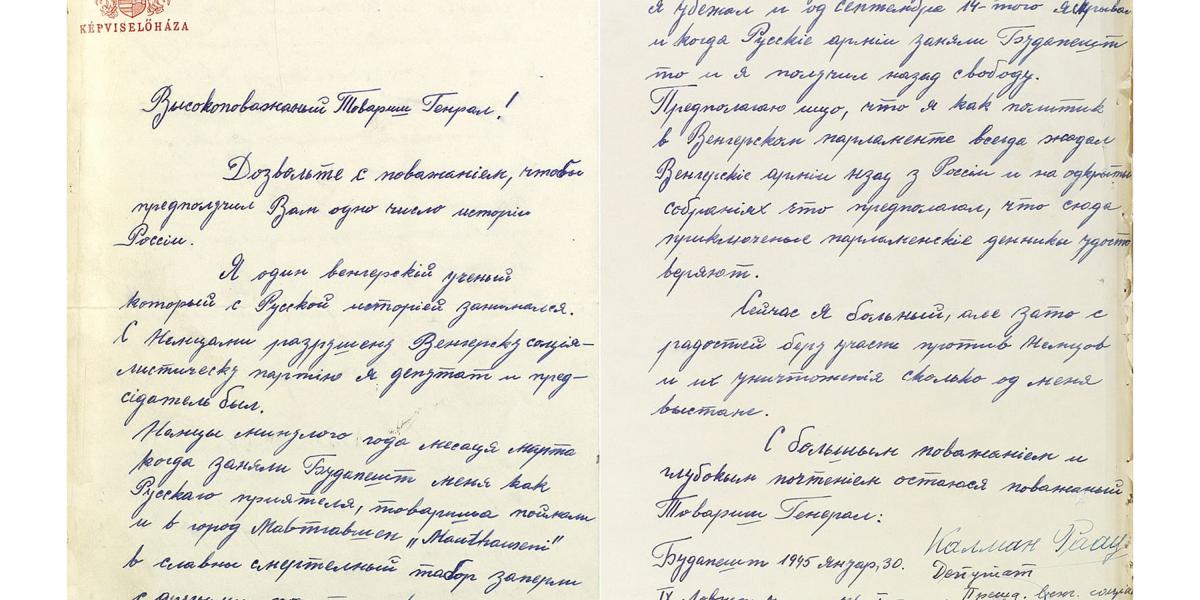 KÉPVISELŐHÁZA
Высокоповажаный Товариш Генрал!
Дозвольте с поважаніем, чтобы
предполучил Вам одно число исторіи
Россіи.
Я один венгерскій ученый
который с Русской исторіей занимался.
С Немцами разрушену Венгерску соція-
листическу партію я депутат и пред-
сідатель был.
Немцы минулого года месаця марта
когда заняли Будапешт меня как
Русскаго приятеля, товариша поймали
и в город Мавтгавшен „Mauthauseni"
в славни смертелный табор заперли
я убежал и од септембра 14-того я скрывал
и когда Русскіе арміи заняли Будапешт
то и я получил назад свободу.
Предполагаю ищо, что я как политик
в Венгерском парламенте всегда жадал
Венгерскіе арміи нзад з Россіи и на одкрытых
собраніях что предполагал, что сюда
приключеные парламенскіе денники удосто
веряют.
Сейчас я больный, але зато с
радостей беру участь против Немцов
и их уничтоженія сколько од меня
выстане.
С большым поважаніем и
глубокым почтеніем остаюся поважаный
Товариш Генерал:
Калман Раац
Будапешт 1945 Януар, 30.
Депутат
IX